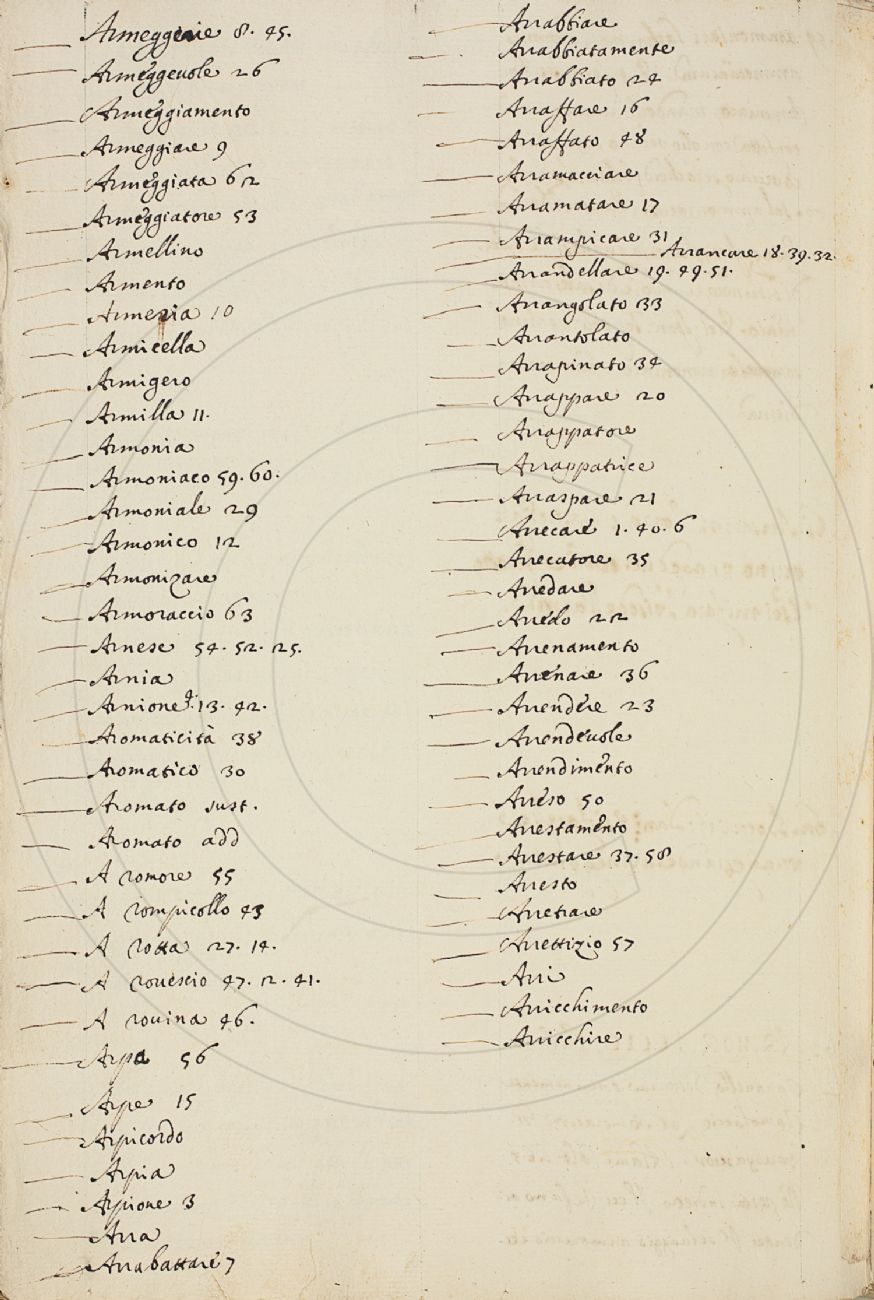 Armeggerie 8. 45.
Armeggeuole 26
Armeggiamento
Armeggiare 9
Armeggiata 62
Armeggiatore 53
Armellino
Armento
Armeria 10
Armicella
Armigero
Armilla 11.
Armonia
Armoniaco 59. 60.
Armoniale 29
Armonico 12
Armonizare
Armoraccio 63
Arnese 54. 52. 25.
Arnia
Arnione 13. 42.
Aromaticità 38
Aromatico 30
Aromato sust.
Aromato add
A romore 55
A rompicollo 43
A rotta 27. 14.
A rouescio 47. 2. 41.
A rouina 46.
Arpa 56
Arpe 15
Arpicordo
Arpia
Arpione 3
Arra
Arrabattare 7
Arrabbiare
Arrabbiatamente
Arrabbiato 24
Arraffare 16
Arraffato 48
Arramacciare
Arramatare 17
Arrampicare 31
Arrancare 18. 39. 32.
Arrandellare 19. 49. 51.
Arrangolato 33
Arrantolato
Arrapinato 34
Arrappare 20
Arrappatore
Arrappatrice
Arraspare 21
Arrecare 1. 40. 6
Arrecatore 35
Arredare
Arredo 22
Arrenamento
Arrenare 36
Arrendere 23
Arrendeuole
Arrendimento
Arreso 50
Arrestamento
Arrestare 37. 58
Arresto
Arretrare
Arrettizio 57
Arri
Arricchimento
Arricchire